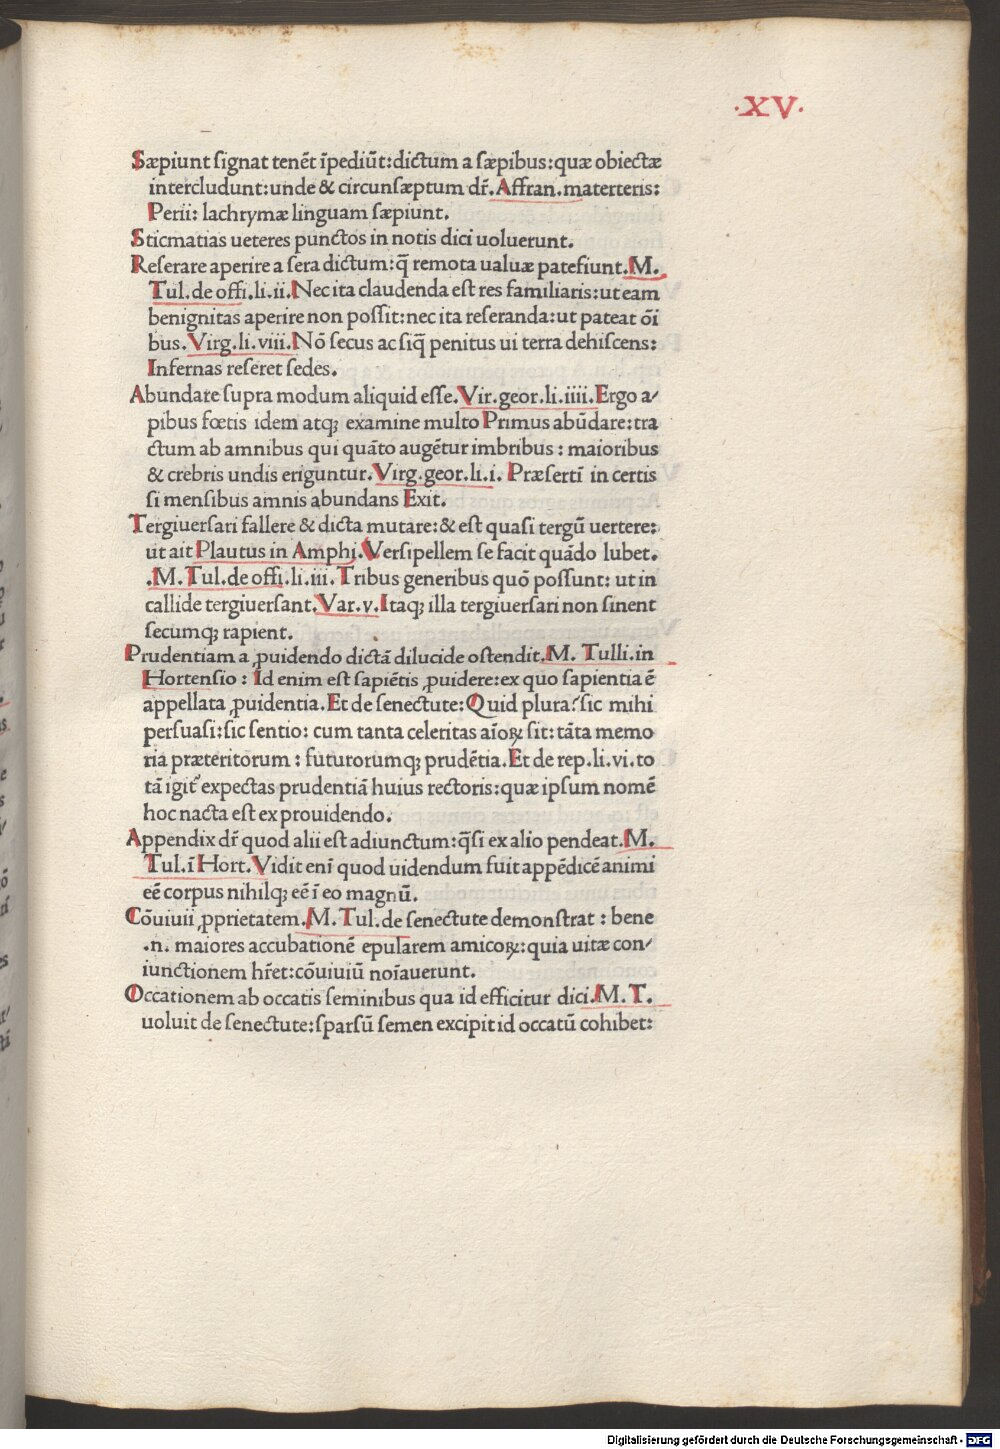 ·XV·
Sæpiunt ſignat tenēt īpediūt:dictum a ſæpibus:quæ obiectæ
intercludunt:unde & circunſæptum dr̄.Affran.materteris:
Perii: lachrymæ linguam ſæpiunt.
Sticmatias ueteres punctos in notis dici uoluerunt.
Reſerare aperire a ſera dictum:q̄ remota ualuæ patefiunt.M.
Tul.de offi.li.ii.Nec ita claudenda eſt res familiaris:ut eam
benignitas aperire non poſſit:nec ita reſeranda:ut pateat ōi
bus.Virg.li.viii.Nō ſecus ac ſiq̄ penitus ui terra dehiſcens:
Infernas reſeret ſedes.
Abundare ſupra modum aliquid eſſe.Vir.geor.li.iiii.Ergo a/
pibus fœtis idem atqꝫ examine multo Primus abūdare:tra
ctum ab amnibus qui quāto augētur imbribus : maioribus
& crebris undis eriguntur.Virg.geor.li.i. Præſertī in certis
ſi menſibus amnis abundans Exit.
Tergiuerſari fallere & dicta mutare:& eſt quaſi tergū uertere:
ut ait Plautus in Amphi.Verſipellem ſe facit quādo lubet.
.M.Tul.de offi.li.iii.Tribus generibus quō poſſunt: ut in
callide tergiuerſant.Var.v.Itaqꝫ illa tergiuerſari non ſinent
ſecumqꝫ rapient.
Prudentiam a ꝓuidendo dictā dilucide oſtendit.M. Tulli.in
Hortenſio : Id enim eſt ſapiētis ꝓuidere:ex quo ſapientia ē
appellata ꝓuidentia.Et de ſenectute:Quid plura?ſic mihi
perſuaſi:ſic ſentio: cum tanta celeritas aīoꝝ ſit:tāta memo
ria præteritorum : futurorumqꝫ prudētia.Et de rep.li.vi.to
tā igit᷑ expectas prudentiā huius rectoris:quæ ipſum nomē
hoc nacta eſt ex prouidendo.
Appendix dr̄ quod alii eſt adiunctum:q̄ſi ex alio pendeat.M.
Tul.ī Hort.Vidit enī quod uidendum fuit appēdicē animi
eē corpus nihilqꝫ eē ī eo magnū.
Cōuiuii ꝓprietatem.M.Tul.de ſenectute demonſtrat : bene
.n. maiores accubationē epularem amicoꝝ:quia uitæ con/
iunctionem hr̄et:cōuiuiū noīauerunt.
Occationem ab occatis ſeminibus qua id efficitur dici.M.T.
uoluit de ſenectute:ſparſū ſemen excipit id occatū cohibet:
Digitalisierung gefördert durch die Deutsche Forschungsgemeinschaft - DFG